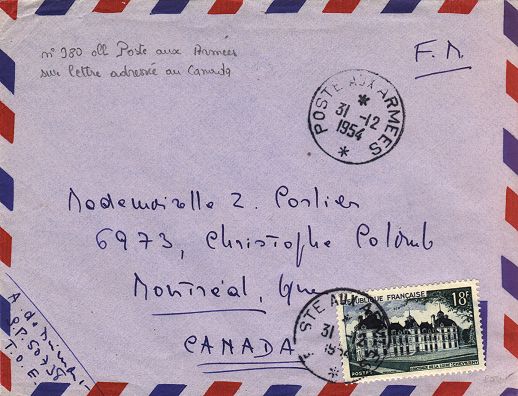 n° 980 obl Poste aux Armées
sur lettre adressée au Canada
F. M
POSTE AUX ARMEES
31 -12
1954
Mademoiselle Z. Portier
6973, Christophe Colomb
Montréal, Que
CANADA
STE AUX A
31
1954
RÉPUBLIQUE FRANÇAISE
18F
POSTES
S.P. 50738
T. O. E.